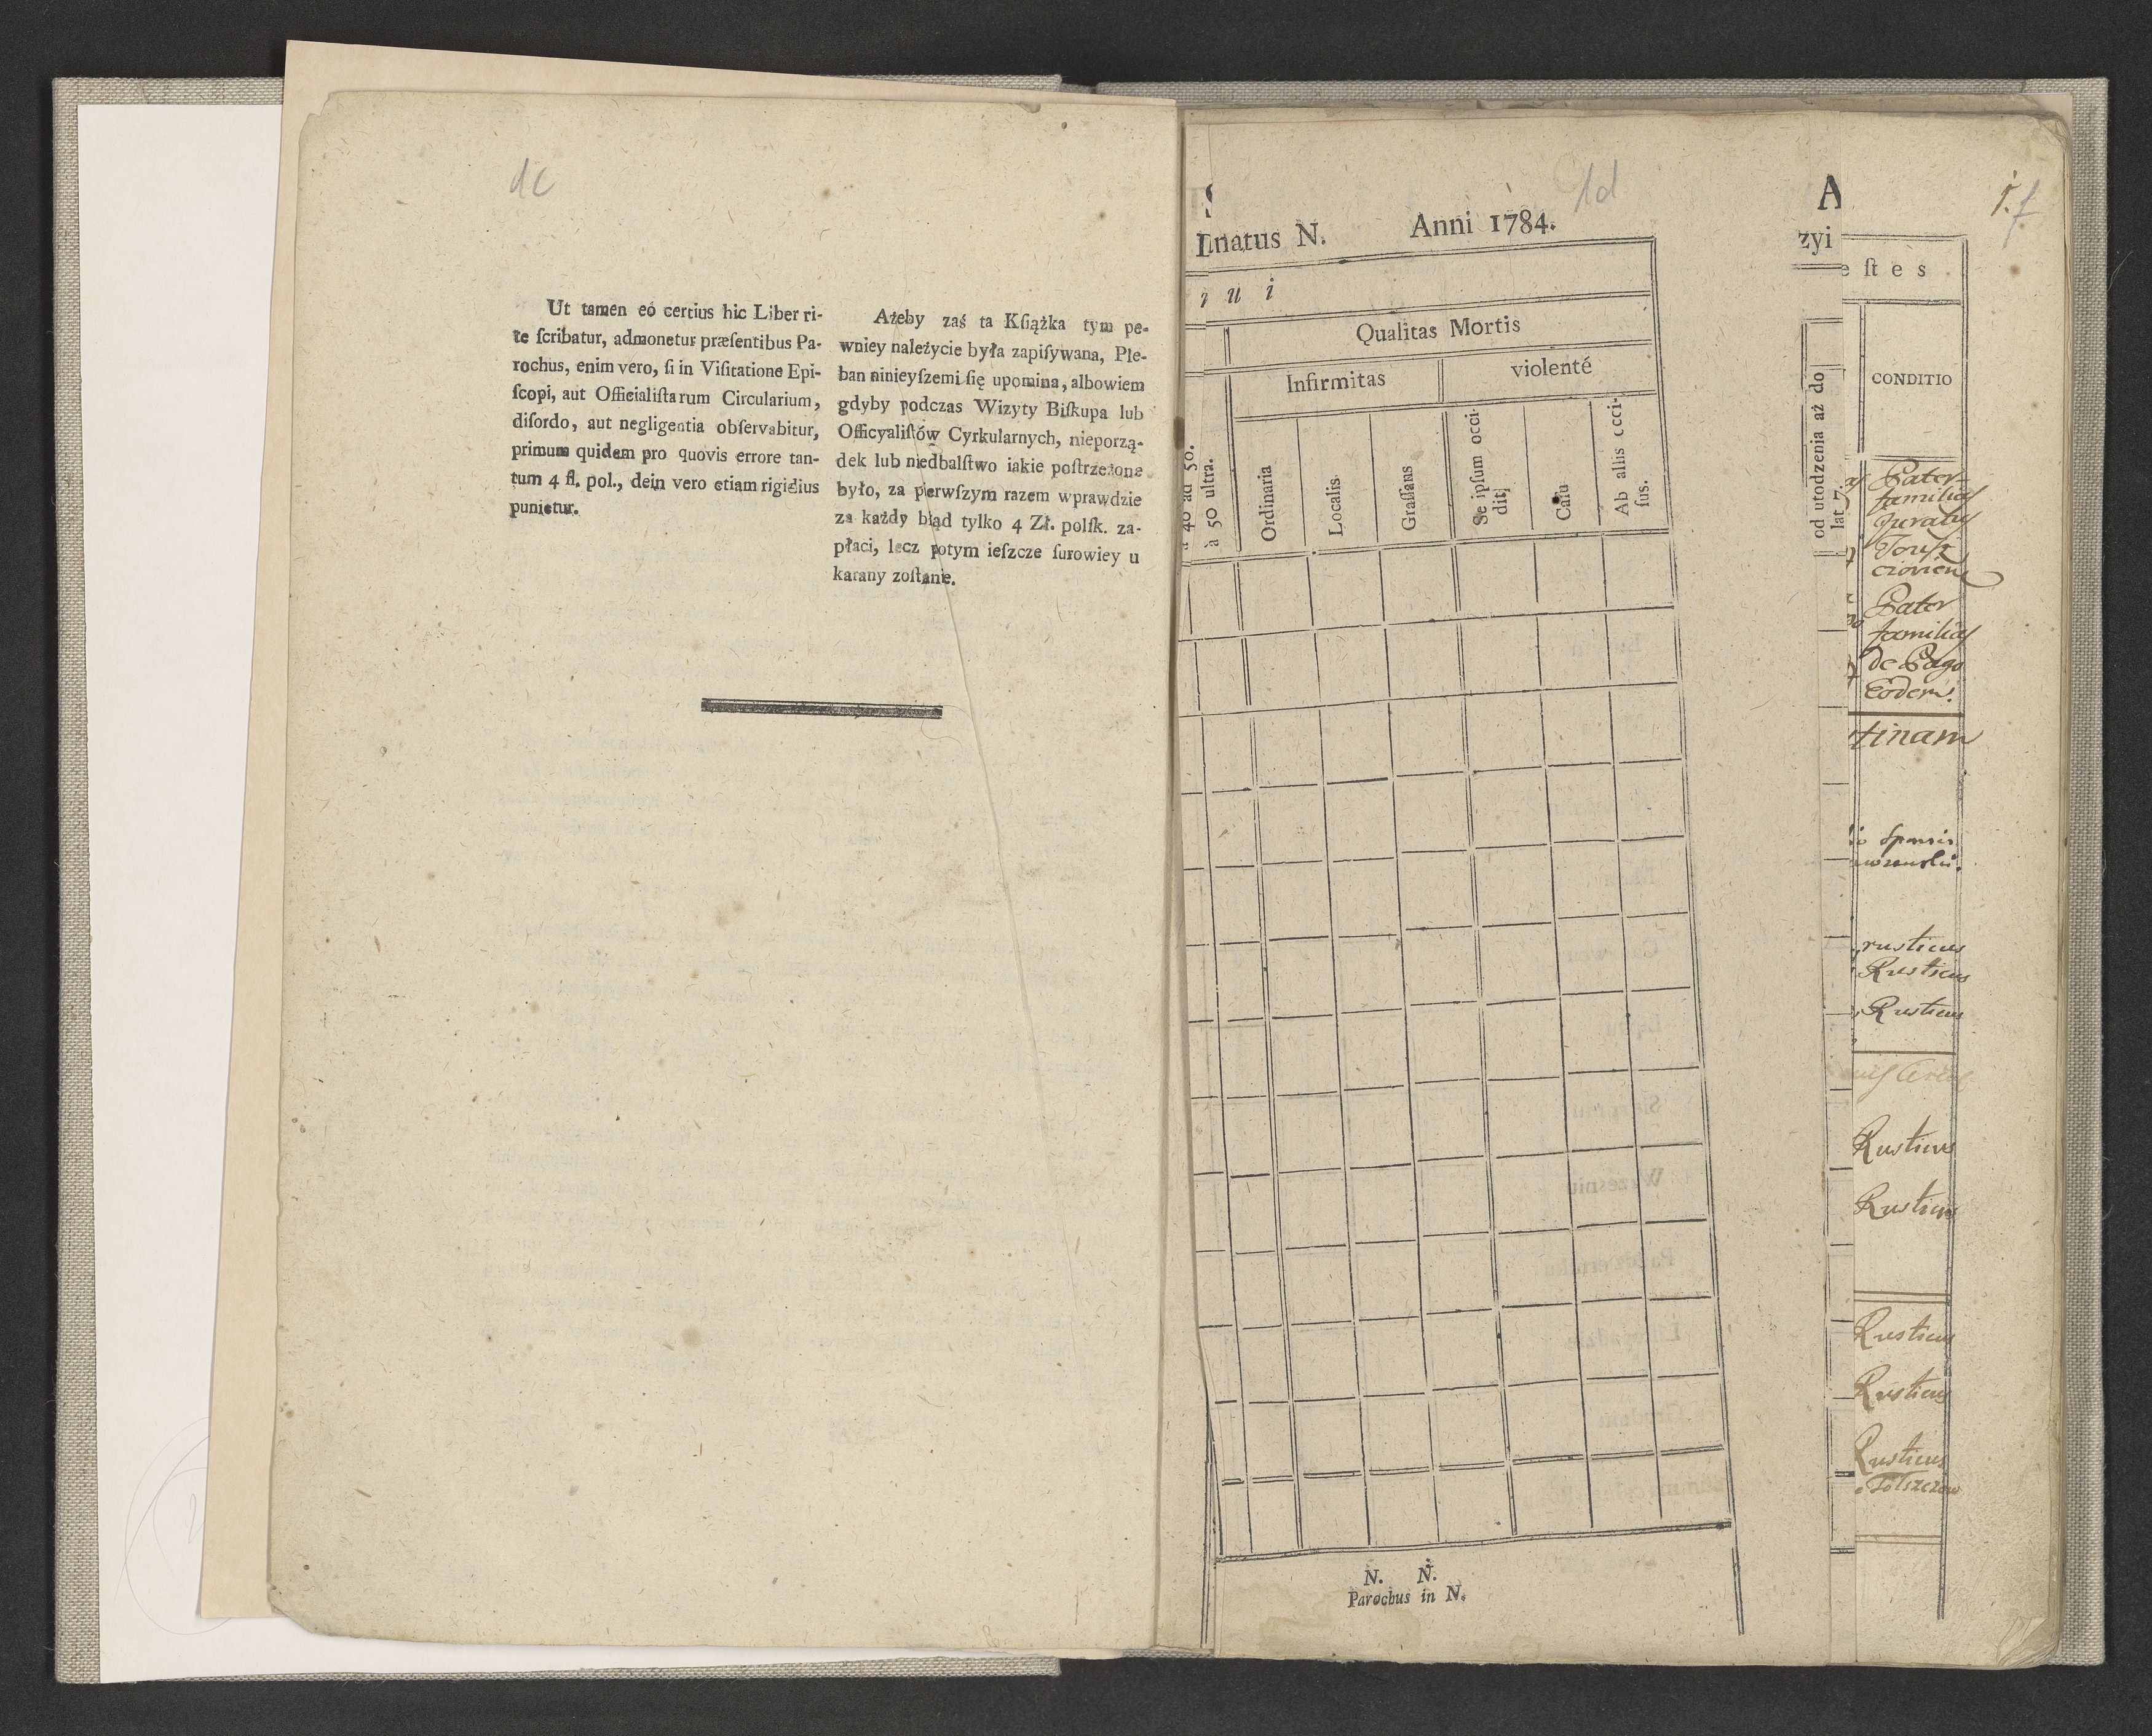 dc
Ut tamen eó certius hic Liber ri-
te ſcribatur, admonetur præſentibus Pa-
rochus, enim vero, ſi in Viſitatione Epi-
ſcopi, aut Officialiſtarum Circularium,
diſordo, aut negligentia obſervabitur,
primum quidem pro quovis errore tan-
tum 4 fl. pol., dein vero etiam rigidius
punietur.
Ażeby zaś ta Kſiążka tym pe-
wniey należycie była zapiſywana, Ple-
ban ninieyſzemi ſię upomina, albowiem
gdyby podczas Wizyty Biſkupa lub
Officyaliſtów Cyrkularnych, nieporzą-
dek lub niedbalſtwo iakie poſtrzeżone
było, za pierwſzym razem wprawdzie
za każdy błąd tylko 4 Zł. polſk. za-
płaci, lecz potym ieſzcze ſurowiey u
karany zoſtanie.
1d
natus N. Anni 1784.
i u i
Qualitas Mortis
Infirmitas
violenté
à 40 ad 50.
à 50 ultra.
Ordinaria
Localis
Graſſans
Se ipſum occi-
dit
Caſu
Ab aliis occi-
ſus.
N. N.
Parochus in N.
A
zyi
od utodzenia aż do
lat 7.
1.
eſtes
CONDITIO
Pater
familias
Juratus
Pater
familias
de Pago
Eodem.
tinam
rusticus
Rusticus
Rusticus
Rusticus
Rusticus
Rusticus
Rusticus
Rusticus